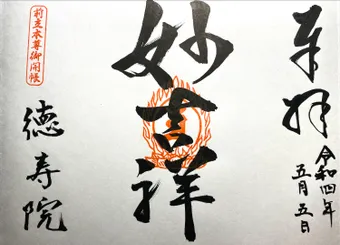 奉拝
令和四年
五月五日
妙吉祥
前立本尊御開帳
徳寿院